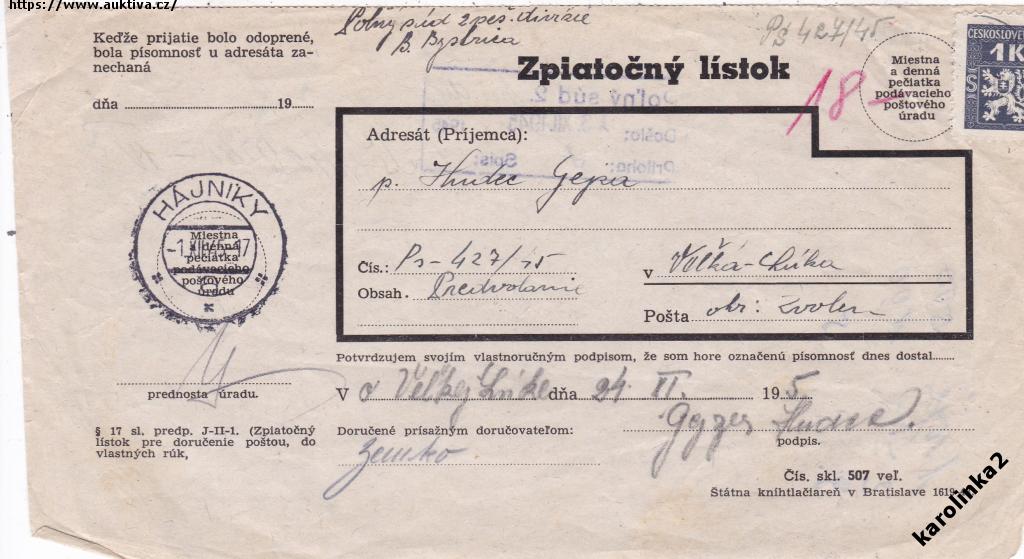 https://www.auktiva.cz/
Poľný súd 2 peš. divízie
B. Bystrica
Ps 427/45
Keďže prijatie bolo odoprené,
bola písomnosť u adresáta za-
nechaná
dňa 19
Zpiatočný lístok
18
Miestna
a denná
pečiatka
podávacieho
poštového
úradu
ČESKOSLOVE
1K
Poľný súd 2.
Došlo: XII.1945
Príloha: Spis:
Adresát (Príjemca):
p. Hudec Gejza
Čís.: Ps-427/45
v Veľká-Lúka
Obsah. Predvolanie
Pošta okr: Zvolen
HÁJNIKY
Miestna
a denná
pečiatka
podávacieho
poštového
úradu
Potvrdzujem svojím vlastnoručným podpisom, že som hore označenú písomnosť dnes dostal
V o Veľkej Lúke dňa 24. XI. 19 5
prednosta úradu.
Gejza Hudec.
podpis.
§ 17 sl. predp. J-II-1. (Zpiatočný
lístok pre doručenie poštou, do
vlastných rúk,
Doručené prísažným doručovateľom:
Zemko
Čís. skl. 507 veľ.
Štátna kníhtlačiareň v Bratislave
karolinka2